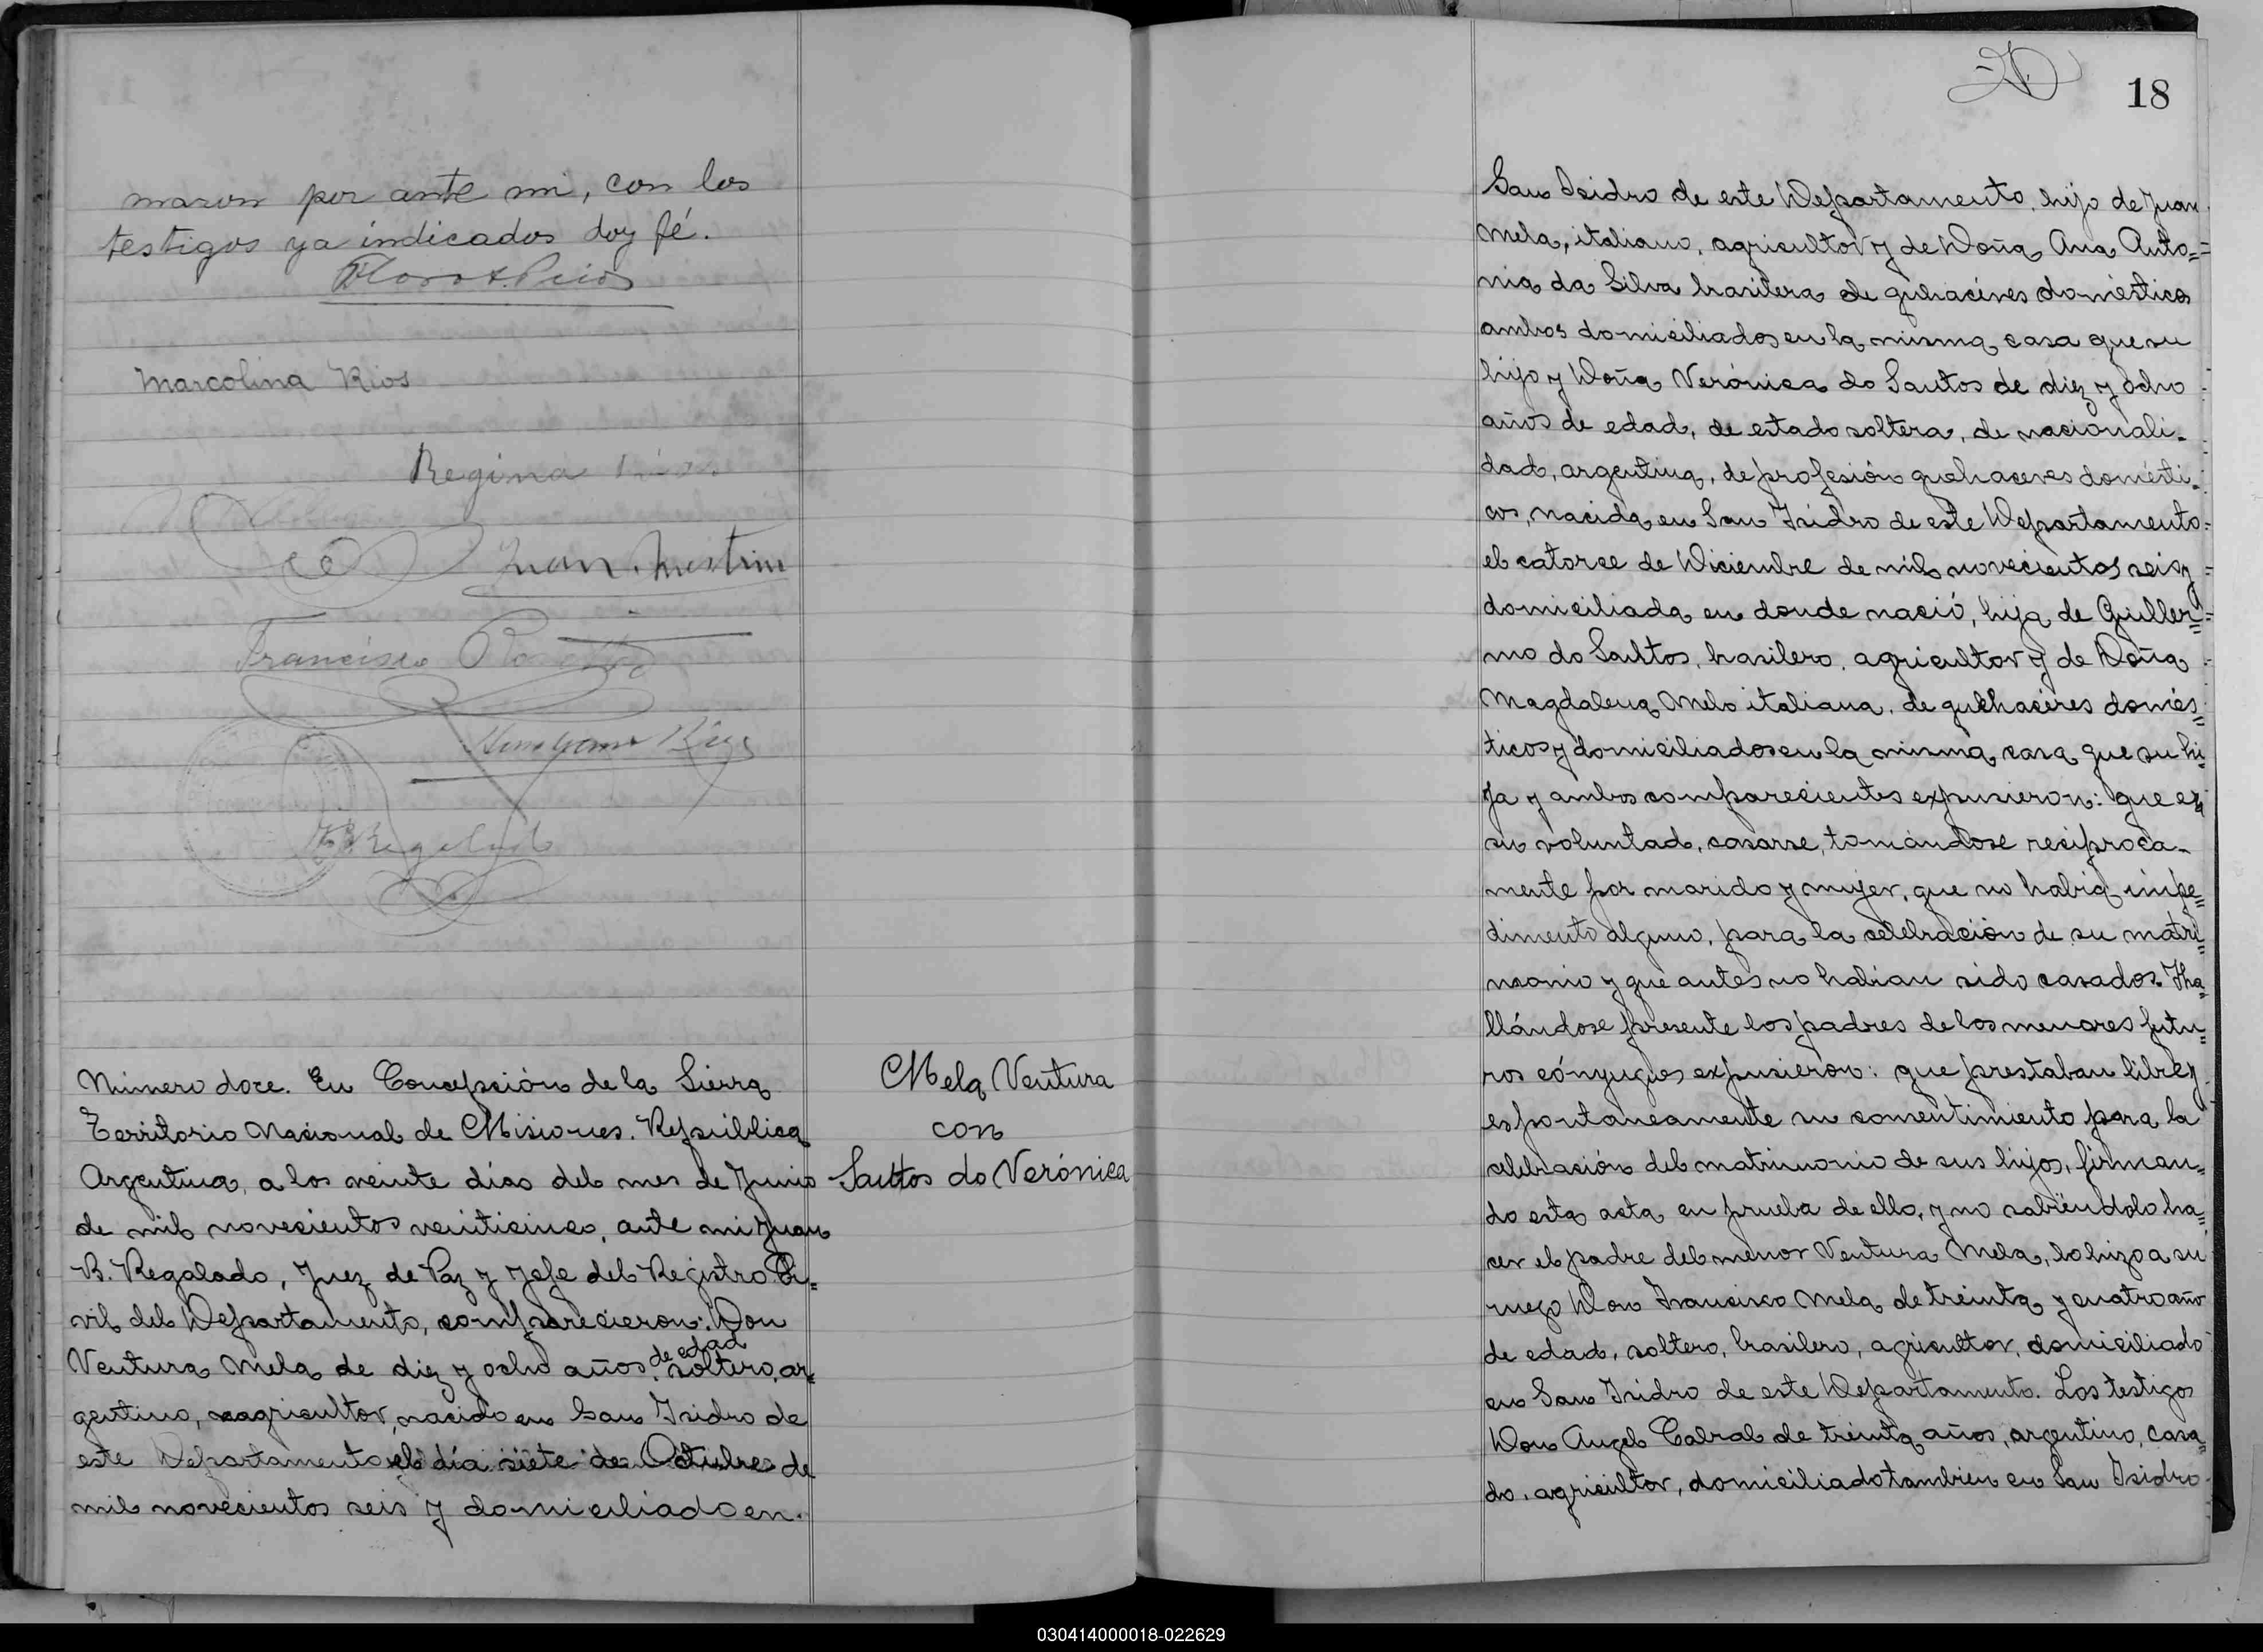 maron por ante mi, con los
testigos ya indicados doy fé.
Marcolina Rios
Regina Rios
Juan
Francisco
Regalado
Número doce. En Concepción de la Sierra
Territorio Nacional de Misiones. República
Argentina, a los veinte días del mes de Junio
de mil novecientos veinticinco, ante mi Juan
B. Regalado, Juez de Paz y Jefe del Registro Ci=
vil del Departamento, comparecieron: Don
Ventura Mela de diez y ocho años, de edad soltero, ar=
gentino, agricultor, nacido en San Isidro de
este Departamento el día siete de Octubre de
mil novecientos seis y domiciliado en.
Mela Ventura
con
Santos do Verónica
18
San Isidro de este Departamento, hijo de Juan
Mela, italiano, agricultor y de Doña Ana Anto=
nia da Silva brasilera de quehaceres domésticos
ambos domiciliados en la misma casa que su
hijo y Doña Verónica do Santos de diez y ocho
años de edad, de estado soltera, de nacionali-
dad, argentina, de profesión quehaceres domésti-
cos, nacida en San Isidro de este Departamento
el catorce de Diciembre de mil novecientos seis y
domiciliada en donde nació, hija de Guiller=
mo do Santos, brasilero, agricultor y de Doña
Magdalena Melo italiana, de quehaceres domés=
ticos y domiciliados en la misma casa que su hi=
ja y ambos comparecientes expusieron: que era
su voluntad, casarse, tomándose resiproca-
mente por marido y mujer, que no habia impe=
dimento alguno, para la celebración de su matri=
monio y que antes no habian sido casados. Ha=
llándose presente los padres de los menores futu=
ros cónyuges expusieron: que prestaban libre y
espontaneamente su consentimiento para la
celebración del matrimonio de sus hijos, firman=
do esta acta en prueba de ello, y no sabiéndolo ha=
cer el padre del menor Ventura Mela, lo hizo a su
ruego Don Francisco Mela de treinta y cuatro año
de edad, soltero, brasilero, agricultor, domiciliado
en San Isidro de este Departamento. Los testigos
Don Angel Cabral de treinta años, argentino, casa=
do, agricultor, domiciliado tambien en San Isidro
030414000018-022629